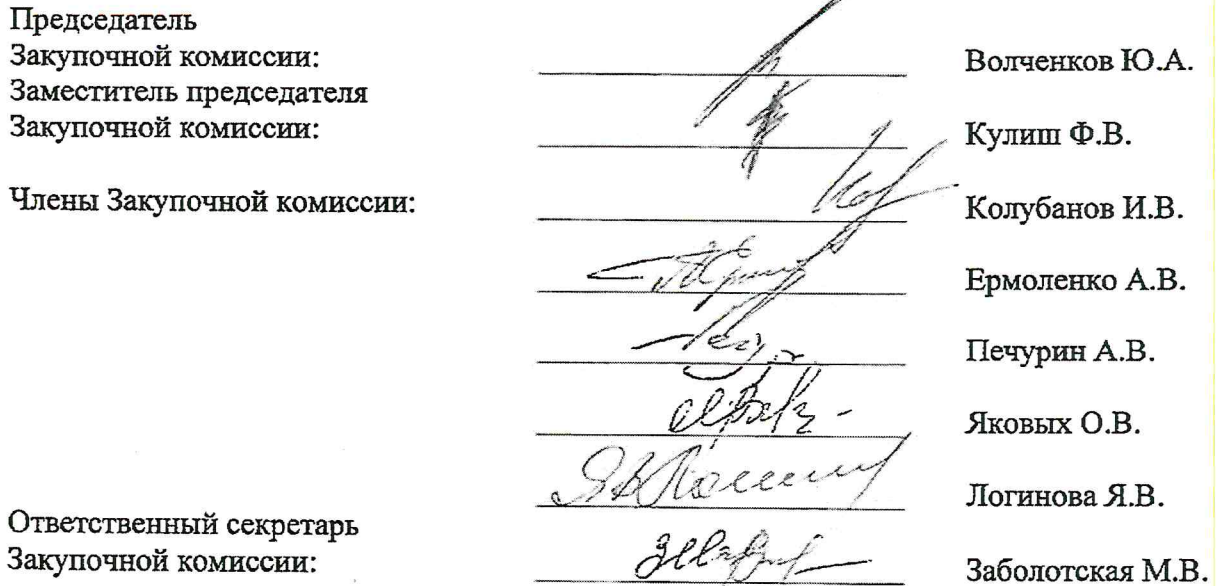 Председатель
Закупочной комиссии: Волченков Ю.А.
Заместитель председателя
Закупочной комиссии: Кулиш Ф.В.
Члены Закупочной комиссии: Колубанов И.В.
Ермоленко А.В.
Печурин А.В.
Яковых О.В.
Логинова Я.В.
Ответственный секретарь
Закупочной комиссии: Заболотская М.В.